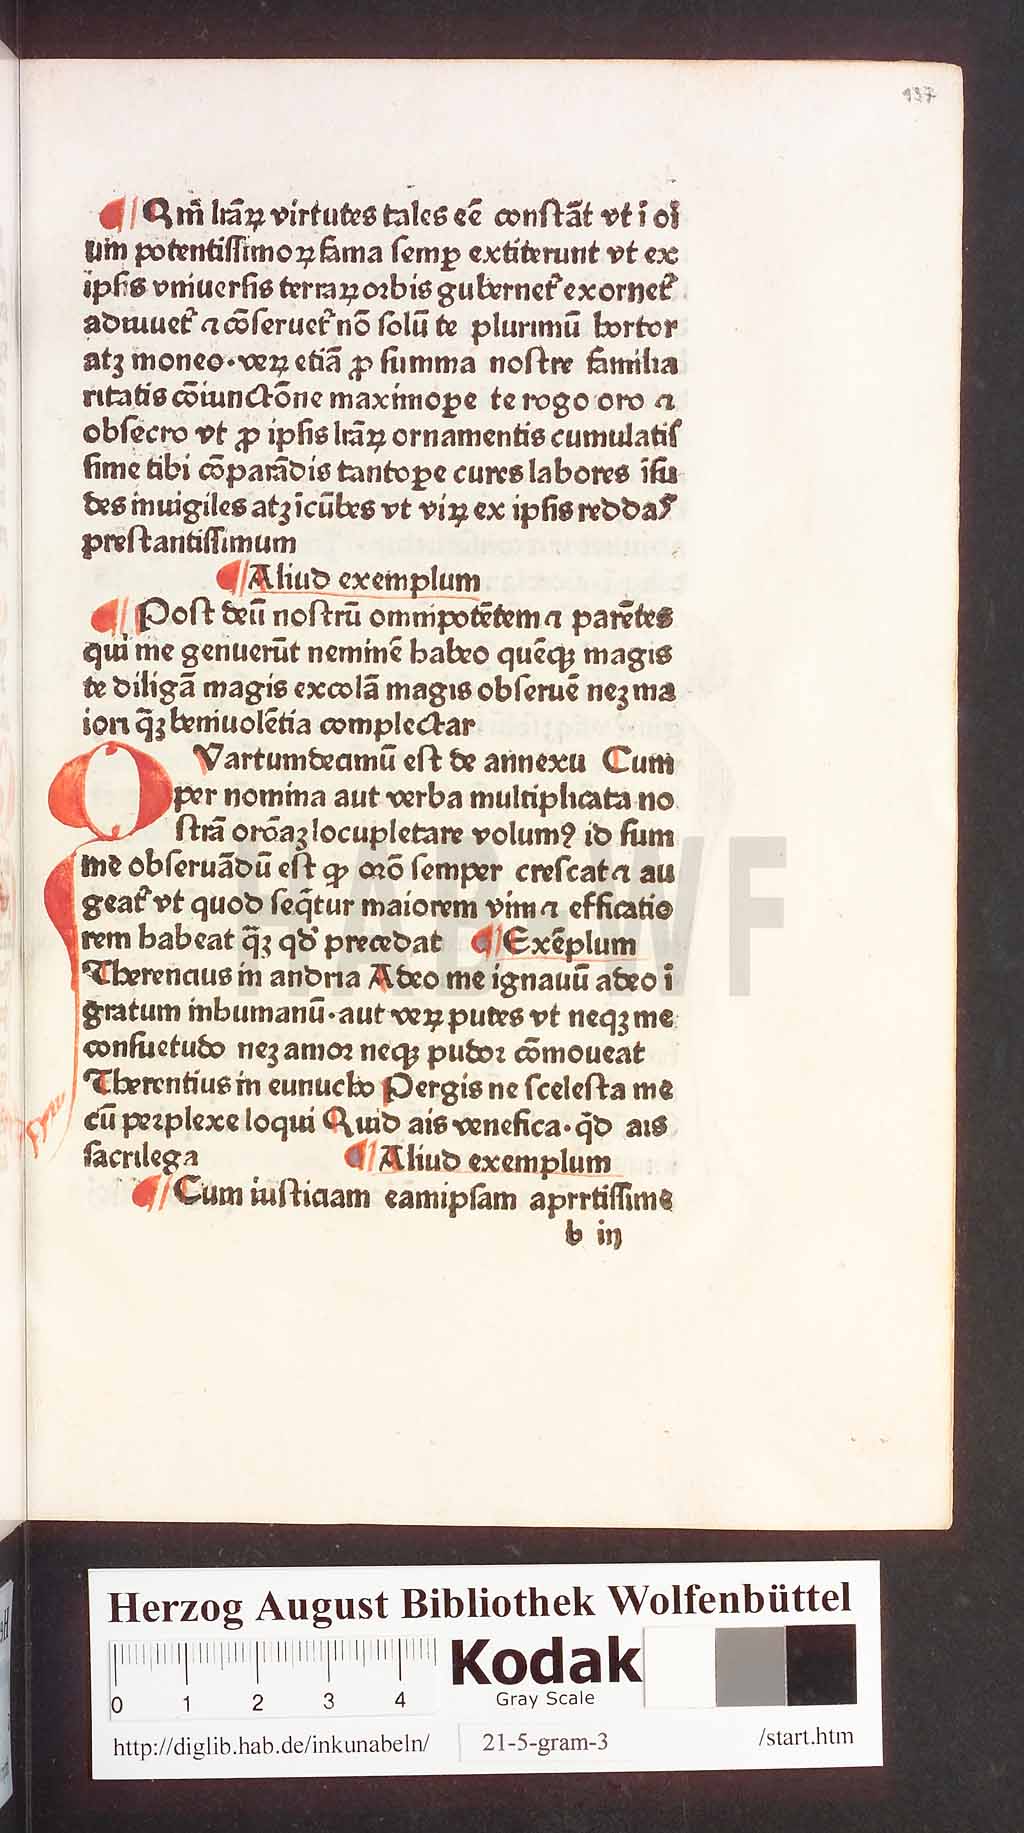 137
¶ Qm̄ lr̄aꝝ virtutes tales eē constāt vt ī oī
um potentissimoꝝ fama semꝑ extiterunt vt ex
ipsis vniuersis terraꝝ orbis gubernet᷑ exornet᷑
adiuuet᷑ ⁊ cōseruet᷑ nō solū te plurimū hortor
atqꝫ moneo · veꝝ etiā ꝓ summa nostre familia
ritatis cōiunctōne maximopꝑe te rogo oro ⁊
obsecro vt ꝓ ipsis lr̄aꝝ ornamentis cumulatis
sime tibi cōparādis tantoꝑe cures labores īsu
des inuigiles atꝫ īcūbes vt viꝝ ex ipsis reddaſ
prestantissimum
¶ Aliud exemplum
¶ Post deū nostrū omnipotētem ⁊ parētes
qui me genuerūt neminē habeo quēqꝫ magis
te diligā magis excolā magis obseruē neꝫ ma
iori q̄ꝫ beniuolētia complectar
Qvartumdecimū est de annexu Cum
per nomina aut verba multiplicata no
strā orōꝫ locupletare volumꝰ id sum
me obseruādū est ꝙ orō semper crescat ⁊ au
geat᷑ vt quod seq̄tur maiorem vim ⁊ efficatio
rem habeat q̄ꝫ qd̓ precedat ¶ Exēplum
Therencius in andria Adeo me ignauū adeo ī
gratum inhumanū · aut veꝝ putes vt neqꝫ me
consuetudo neꝫ amor neqꝫ pudor cōmoueat
Therentius in eunucho Pergis ne scelesta me
cū perplexe loqui Quid ais venefica · q̄d ais
sacrilega ¶ Aliud exemplum
¶ Cum iusticiam eamipsam aprrtissime
b iij
HAB-WF
Herzog August Bibliothek Wolfenbüttel
0 1 2 3 4
Kodak
Gray Scale
http://diglib.hab.de/inkunabeln/ 21-5-gram-3 /start.htm